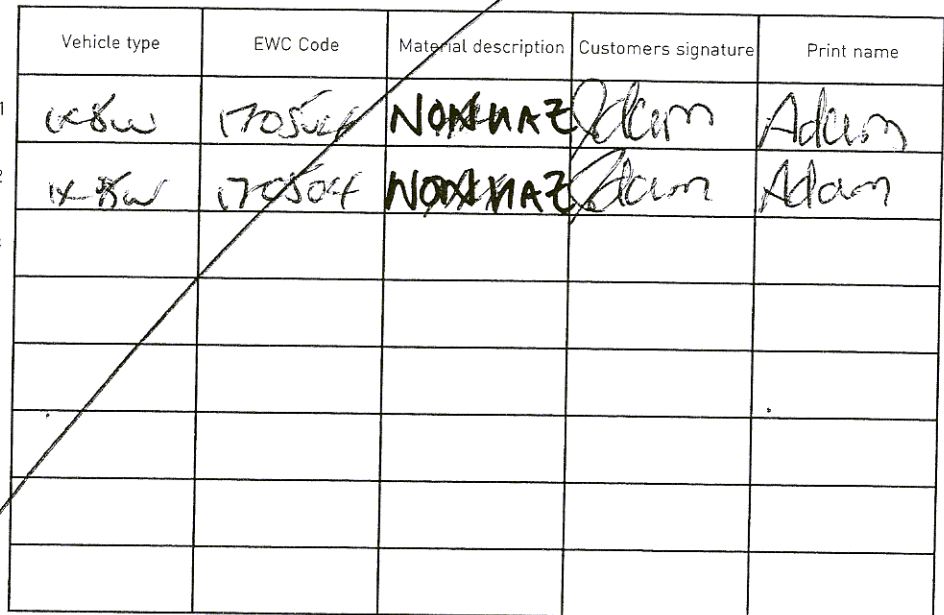 Vehicle type EWC Code Material description Customers signature Print name
1 1x8w 170504 NON HAZ Adam Adam
2 1x8w 170504 NON HAZ Adam Adam